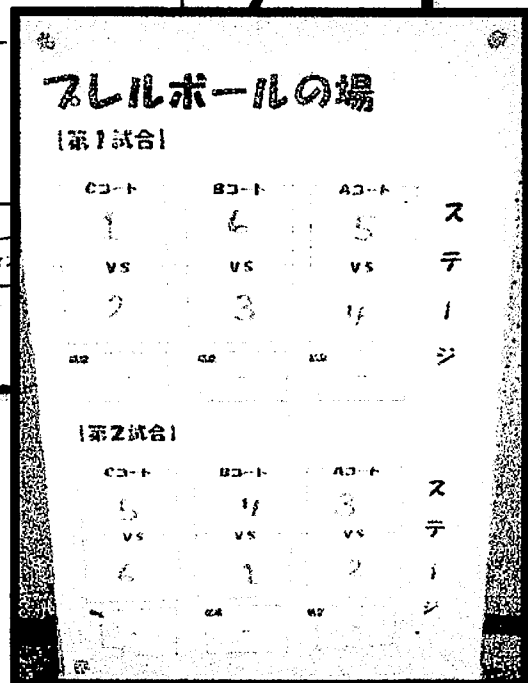 プレルボールの場
［第1試合］
Cコート Bコート Aコート
1 6 5
VS VS VS
2 3 4
ステージ
［第2試合］
Cコート Bコート Aコート
5 4 3
VS VS VS
6 1 2
ステージ